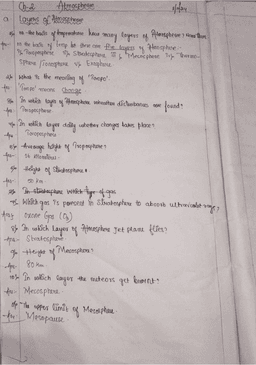 Ch-2 Atmosphere
a Layers of Atmosphere
on the basis of temperature how many layers of Atmosphere? name them
Ans- on the basis of temp. there are five layers of Atmosphere-
Troposphere Stratosphere Mesosphere Thermo-
sphere / Ionosphere Exosphere
What is the meaning of "Tropo".
"Tropo" means change
In which layer of Atmosphere disturbances are found?
Ans- Troposphere
In which layer daily weather changes takes place?
Ans- Troposphere
Average height of Troposphere?
Ans-
height of Stratosphere?
Ans- 50 km
In stratosphere which type of gas
Which gas is present in Stratosphere to absorb ultraviolet rays?
Ans- ozone Gas (O3)
8) In which layer of Atmosphere jet plane flies?
Ans- Stratosphere
Height of Mesosphere?
Ans- 80 km
In which layer the meteors get burnt?
Ans- Mesosphere
The upper limit of Mesosphere
Ans- Mesopause